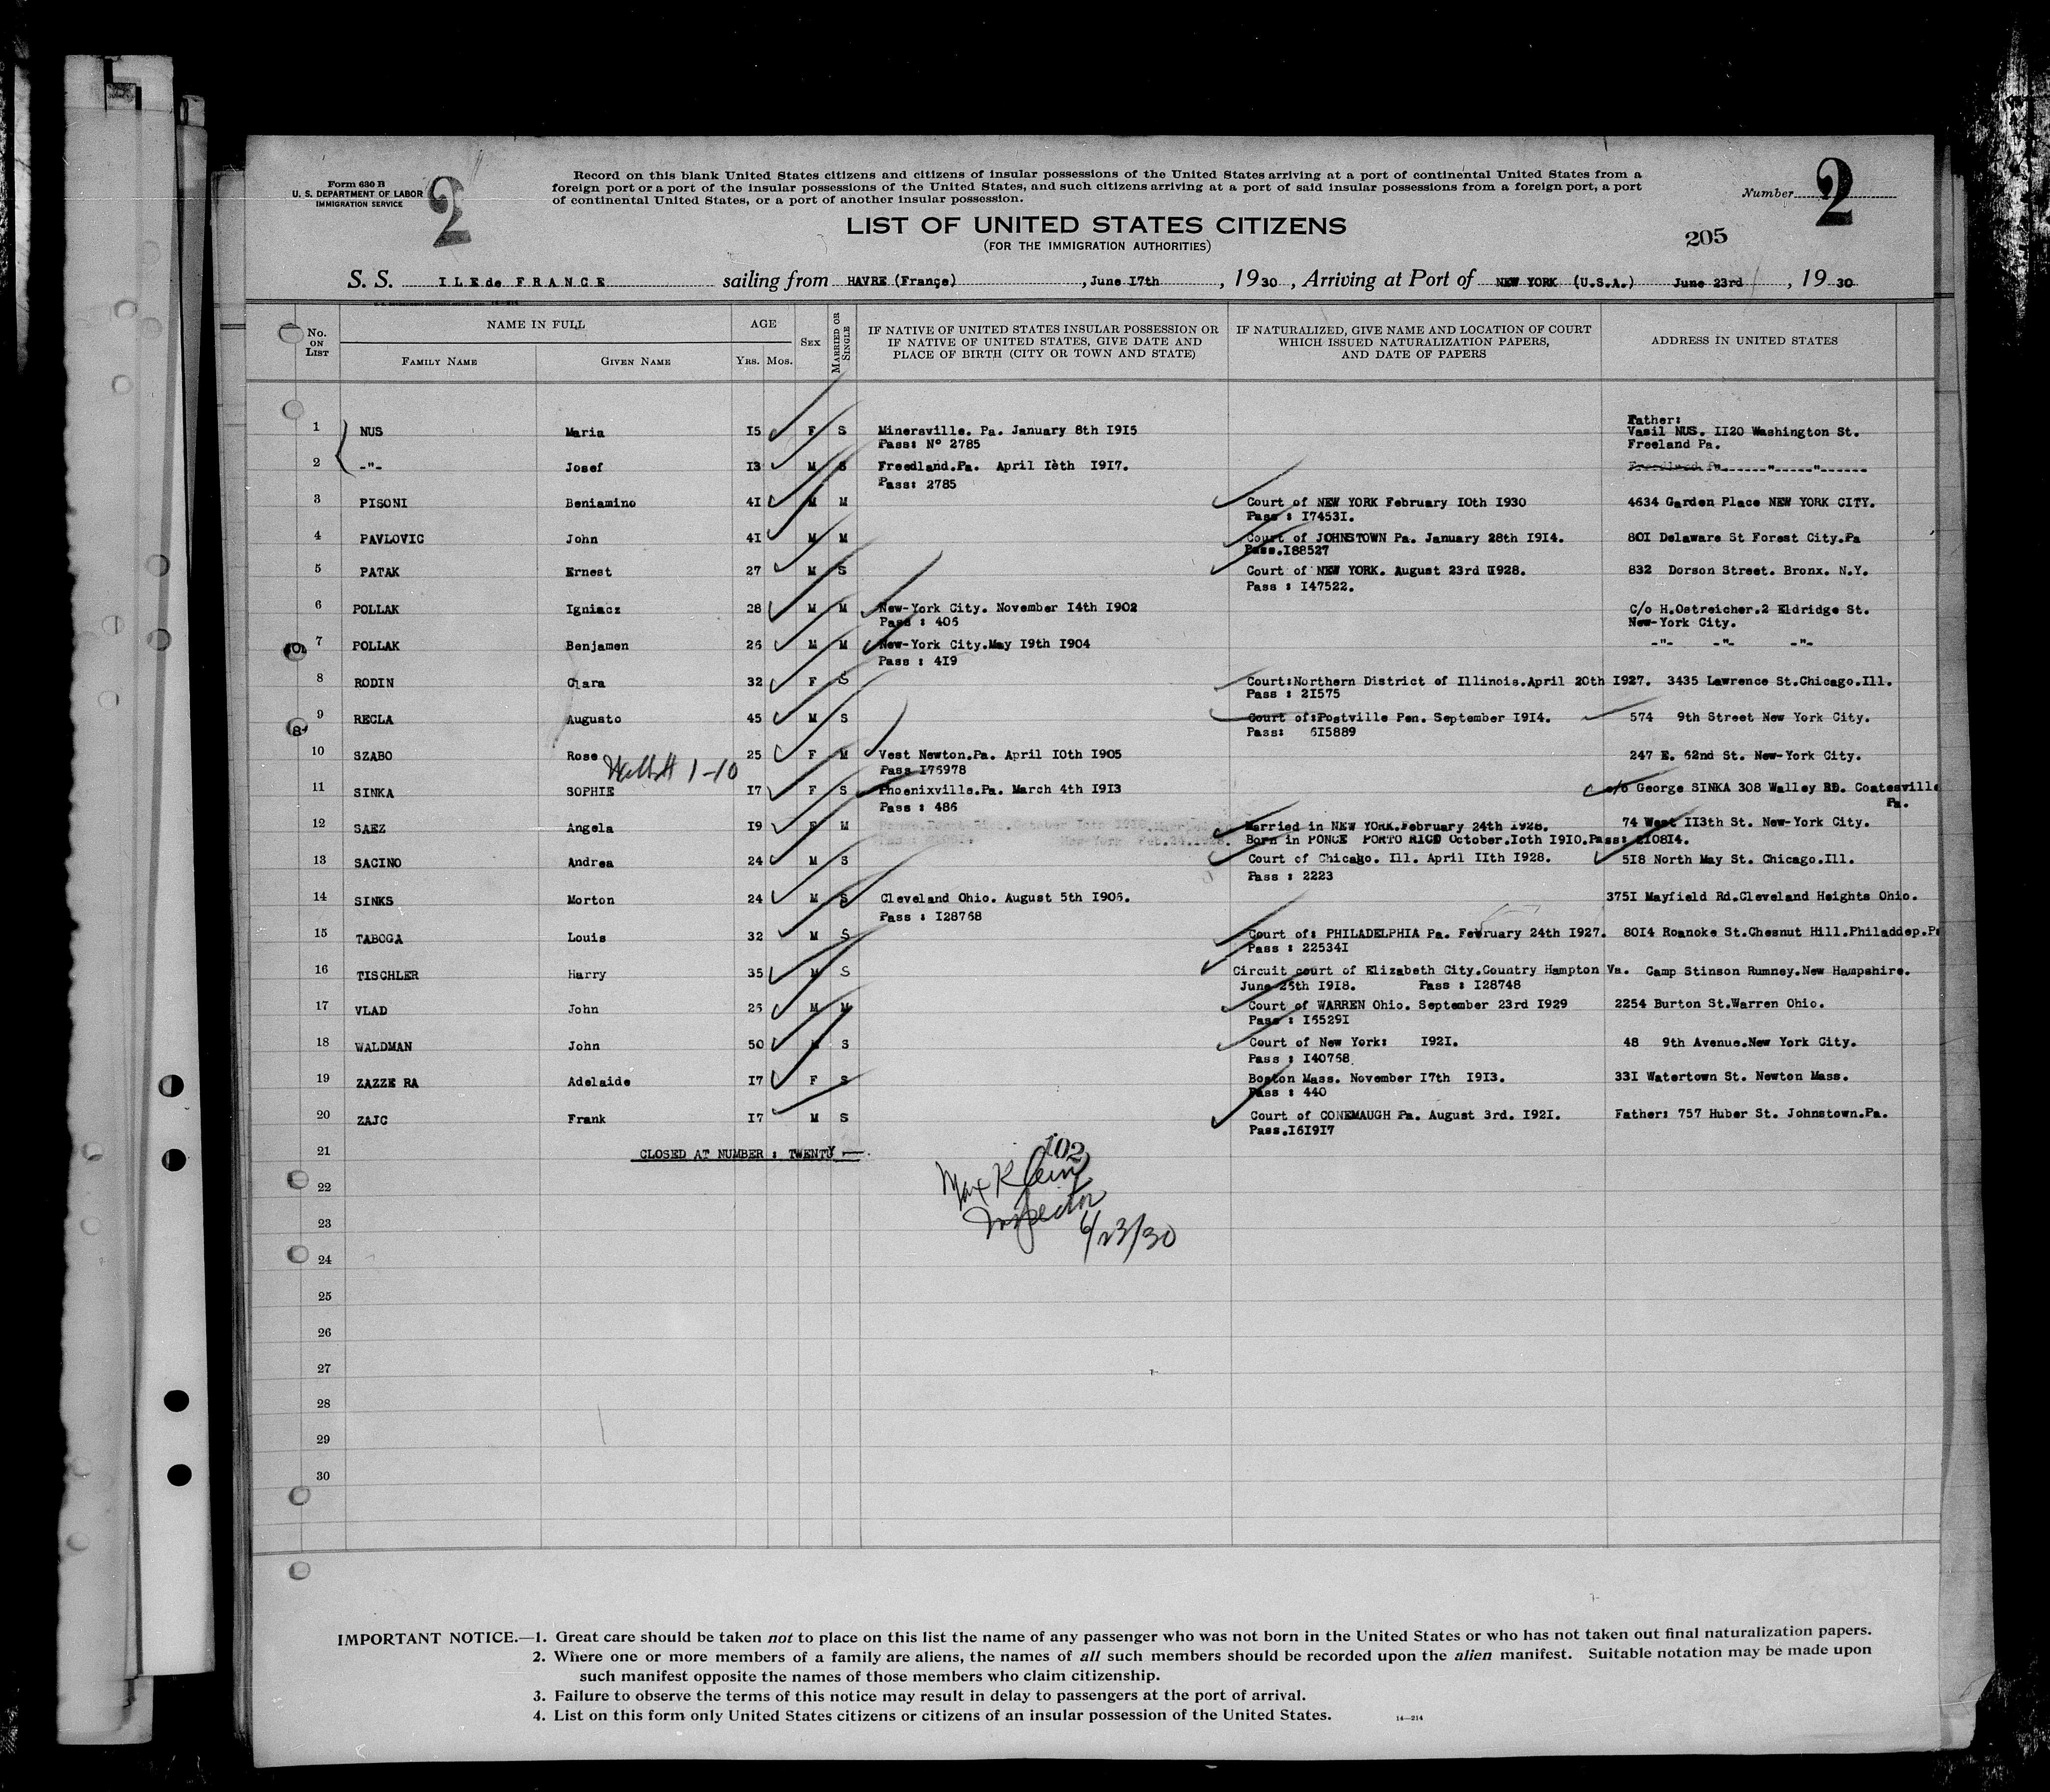 Form 630 B
U. S. DEPARTMENT OF LABOR
IMMIGRATION SERVICE
2
Record on this blank United States citizens and citizens of insular possessions of the United States arriving at a port of continental United States from a
foreign port or a port of the insular possessions of the United States, and such citizens arriving at a port of said insular possessions from a foreign port, a port
of continental United States, or a port of another insular possession.
Number 2
LIST OF UNITED STATES CITIZENS
(FOR THE IMMIGRATION AUTHORITIES)
205
S. S. ILE de FRANCE sailing from HAVRE (France), June I7th, 1930, Arriving at Port of NEW YORK (U.S.A.) June 23rd, 1930
No. ON LIST
NAME IN FULL
FAMILY NAME GIVEN NAME
AGE
YRS. MOS.
SEX
MARRIED OR SINGLE
IF NATIVE OF UNITED STATES INSULAR POSSESSION OR
IF NATIVE OF UNITED STATES, GIVE DATE AND
PLACE OF BIRTH (CITY OR TOWN AND STATE)
IF NATURALIZED, GIVE NAME AND LOCATION OF COURT
WHICH ISSUED NATURALIZATION PAPERS,
AND DATE OF PAPERS
ADDRESS IN UNITED STATES
Father:
1 NUS Maria I5 F S Minersville. Pa. January 8th I9I5 Vasil NUS. II20 Washington St.
Pass: N° 2785 Freeland Pa.
2 -"- Josef I3 M S Freedland.Pa. April I8th I9I7. -"- -"-
Pass: 2785
3 PISONI Beniamino 4I M M Court of NEW YORK February I0th I930 4634 Garden Place NEW YORK CITY.
Pass : I7453I.
4 PAVLOVIC John 4I M M Court of JOHNSTOWN Pa. January 28th I9I4. 80I Delaware St Forest City.Pa
Pass.I88527
5 PATAK Ernest 27 M S Court of NEW YORK. August 23rd I928. 832 Dorson Street. Bronx. N.Y.
Pass : I47522.
6 POLLAK Igniacz 28 M M New-York City. November I4th I902 C/o H.Ostreicher.2 Eldridge St.
Pass : 406 New-York City.
7 POLLAK Benjamen 26 M M New-York City.May I9th I904 -"- -"- -"-
Pass : 4I9
8 RODIN Clara 32 F S Court:Northern District of Illinois.April 20th I927. 3435 Lawrence St.Chicago.Ill.
Pass : 2I575
9 RECLA Augusto 45 M S Court of:Postville Pen. September I9I4. 574 9th Street New York City.
Pass: 6I5889
10 SZABO Rose 25 F M Vest Newton.Pa. April I0th I905 247 E. 62nd St. New-York City.
1-10
Pass I76978
11 SINKA SOPHIE I7 F S Phoenixville.Pa. March 4th I9I3 c/o George SINKA 308 Walley RD. Coatesville
Pass : 486 Pa.
12 SAEZ Angela I9 F M Married in NEW YORK.February 24th I928. 74 West II3th St. New-York City.
Born in PONCE PORTO RICO October.Ioth I9I0.Pass: 2I08I4.
13 SACINO Andrea 24 M S Court of Chicago. Ill. April IIth I928. 5I8 North May St. Chicago.Ill.
Pass : 2223
14 SINKS Morton 24 M S Cleveland Ohio. August 5th I906. 375I Mayfield Rd.Cleveland Heights Ohio.
Pass : I28768
15 TABOGA Louis 32 M S Court of: PHILADELPHIA Pa. February 24th I927. 80I4 Roanoke St.Chesnut Hill.Philaddep.Pa
Pass : 22534I
16 TISCHLER Harry 35 M S Circuit court of Elizabeth City.Country Hampton Va. Camp Stinson Rumney.New Hampshire.
June 25th I9I8. Pass : I28748
17 VLAD John 25 M M Court of WARREN Ohio. September 23rd I929 2254 Burton St.Warren Ohio.
Pass : I6529I
18 WALDMAN John 50 M S Court of New York: I92I. 48 9th Avenue.New York City.
Pass : I40768
19 ZAZZE RA Adelaide I7 F S Boston Mass. November I7th I9I3. 33I Watertown St. Newton Mass.
Pass : 440
20 ZAJC Frank I7 M S Court of CONEMAUGH Pa. August 3rd. I92I. Father: 757 Huber St. Johnstown.Pa.
Pass.I6I9I7
21 CLOSED AT NUMBER : TWENTY
102
Max Klein
Inspector
6/23/30
22
23
24
25
26
27
28
29
30
IMPORTANT NOTICE.—1. Great care should be taken not to place on this list the name of any passenger who was not born in the United States or who has not taken out final naturalization papers.
2. Where one or more members of a family are aliens, the names of all such members should be recorded upon the alien manifest. Suitable notation may be made upon
such manifest opposite the names of those members who claim citizenship.
3. Failure to observe the terms of this notice may result in delay to passengers at the port of arrival.
4. List on this form only United States citizens or citizens of an insular possession of the United States.
14—214